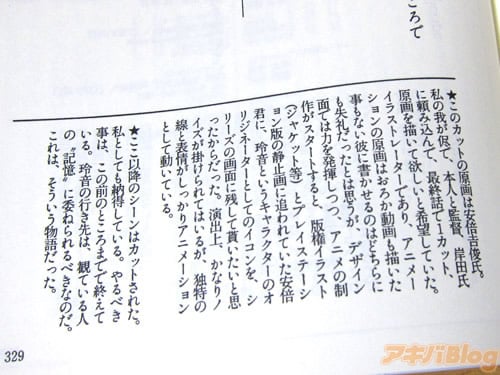 ころで
★このカットの原画は安倍吉俊氏。
私の我が侭で、本人と監督、岸田氏
に頼み込んで、最終話で1カット、
原画を描いて欲しいと希望していた。
イラストレーターであり、アニメー
ションの原画はおろか動画も描いた
事もない彼に書かせるのはどちらに
も失礼だったとは思うが、デザイン
面では力を発揮しつつ、アニメの制
作がスタートすると、版権イラスト
(ジャケット等)とプレイステーシ
ョン版の静止画に追われていた安倍
君に、玲音というキャラクターのオ
リジネーターとしてのイコンを、シ
リーズの画面に残して貰いたいと思
ったからだった。演出上、かなりノ
イズが掛けられてはいるが、独特の
線と表情がしっかりアニメーション
として動いている。
★ここ以降のシーンはカットされた。
私としても納得している。やるべき
事は、この前のところまでで終えて
いる。玲音の行き先は、観ている人
の〝記憶〟に委ねられるべきなのだ。
これは、そういう物語だった。
329
アキバBlog